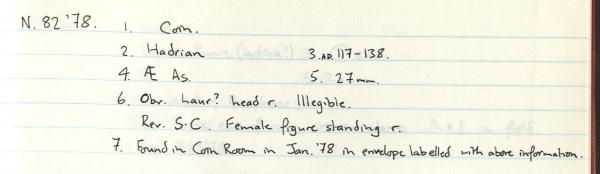 N. 82 '78. 1. Coin.
2. Hadrian 3. AD. 117-138.
4. Æ As. 5. 27mm.
6. Obv. Laur? head r. Illegible.
Rev. S-C Female figure standing r.
7. Found in Coin Room in Jan. '78 in envelope labelled with above information.